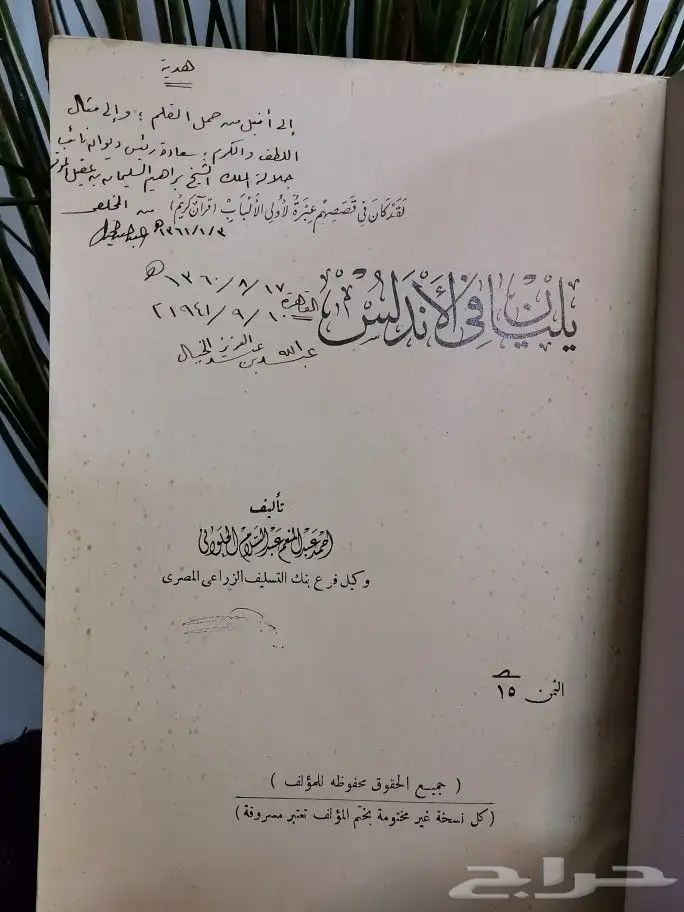 هدية
إلى أنبل من حمل القلم؛ وإلى مثال
اللطف والكرم؛ سعادة رئيس ديوان نائب
جلالة الملك الشيخ إبراهيم السليمان بن عقيل الموقر
لَقَدْ كَانَ فِي قَصَصِهِمْ عِبْرَةٌ لِأُولِي الْأَلْبَابِ (قرآن كريم) من المخلص
١٣٦١/١/٣هـ
١٣٦٠/٨/١٧ هـ
القاهرة ١٩٤١/٩/١٠م
عبد الله بن عبد العزيز الخيال
يليان في الأندلس
تأليف
أحمد عبد المنعم عبد السلام الحلواني
وكيل فرع بنك التسليف الزراعى المصرى
الثمن ١٥
( جميع الحقوق محفوظه للمؤلف )
( كل نسخة غير مختومة بختم المؤلف تعتبر مسروقة )
حراج